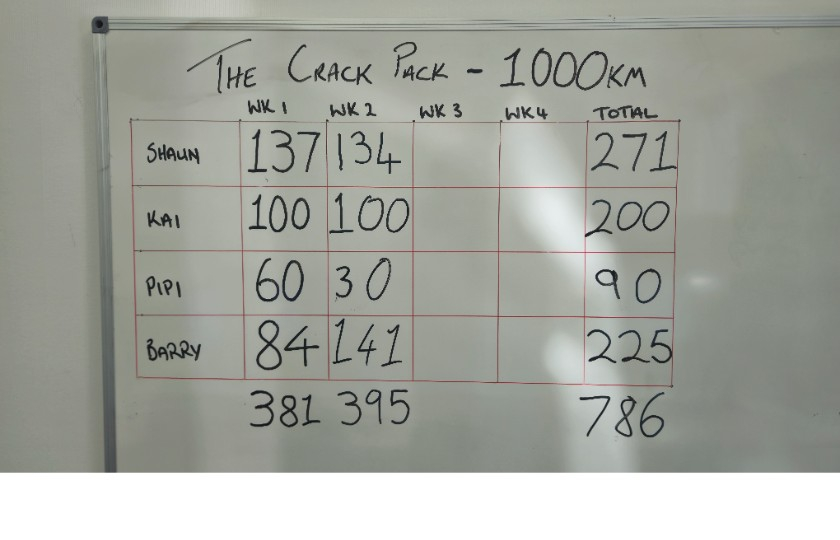 THE CRACK PACK - 1000KM
WK 1 WK 2 WK 3 WK 4 TOTAL
SHAUN 137 134 271
KAI 100 100 200
PIPI 60 30 90
BARRY 84 141 225
381 395 786